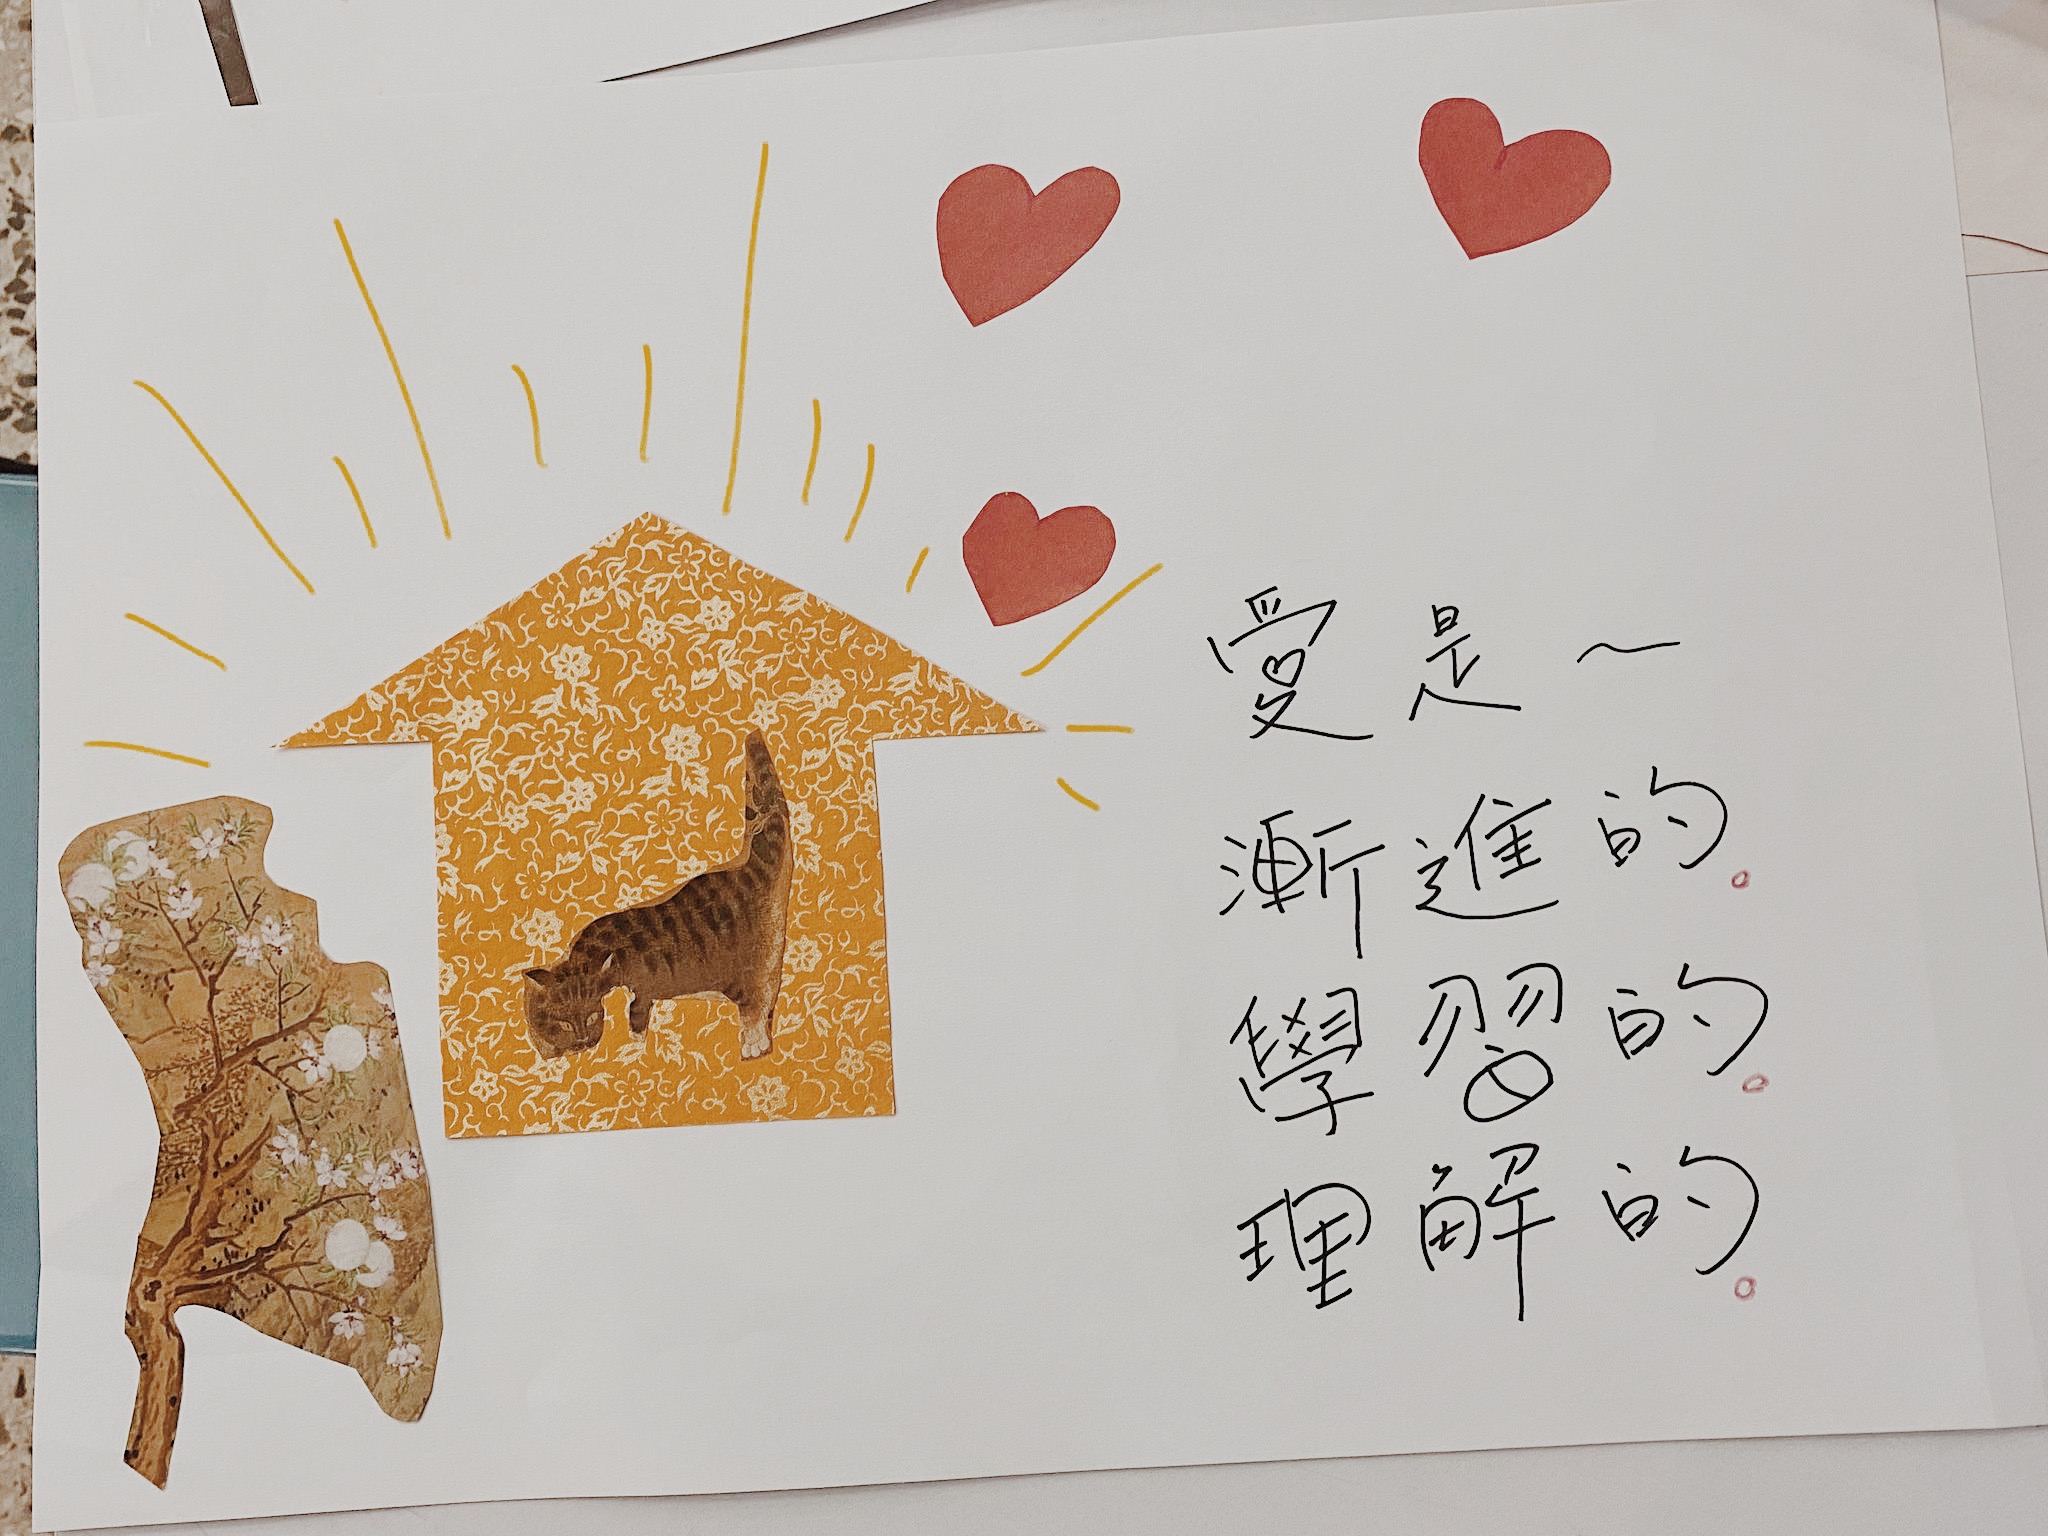 愛是~
漸進的。
學習的。
理解的。